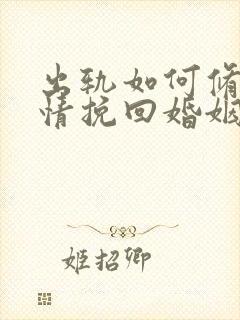 出轨如何修
情挽回婚姻
姬招卿